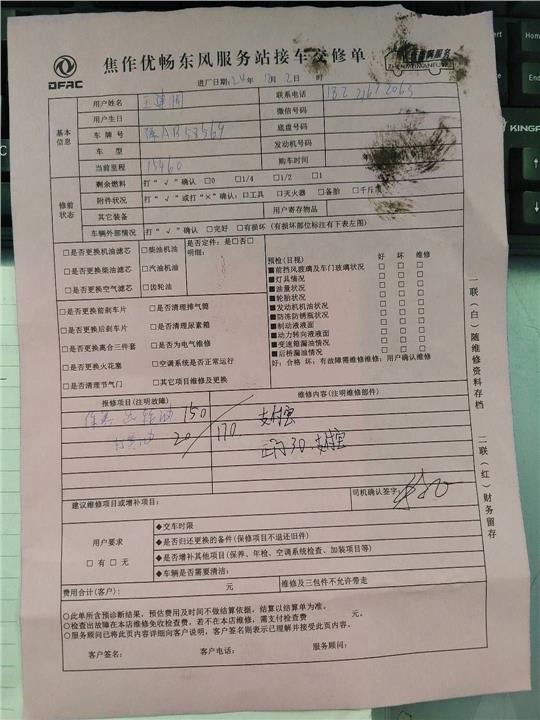 DFAC
焦作优畅东风服务站接车交修单
进厂日期: 24 年 月 2 日 时
基本信息
用户姓名
联系电话
用户生日
微信号码
车牌号
底盘号码
车型
发动机号码
当前里程 15460
购车时间
修前状态
剩余燃料 打“√”确认 □0 □1/4 □1/2 □1
附件状况 打“√”或打“×”确认：□工具 □灭火器 □备胎 □千斤顶
其它装备
用户寄存物品
车辆外部情况 打“√”确认 □完好 □有损坏（有损坏部位标注右下表左图）
□是否更换机油滤芯 □柴油机油
□是否更换柴油滤芯 □汽油机油
□是否更换空气滤芯 □齿轮油
是否定件：是□否□
明细：
□是否更换前刹车片 □是否清理排气筒
□是否更换后刹车片 □是否清理尿素箱
□是否更换离合三件套 □是否为电气维修
□是否更换火花塞 □空调系统是否正常运行
□是否清理节气门 □其它项目维修及更换
预检(目视) 好 坏 维修
■前挡风玻璃及车门玻璃状况 □ □ □
■灯具情况 □ □ □
■油量状况 □ □ □
■轮胎状况 □ □ □
■发动机机油状况 □ □ □
■防冻防锈瓶状况 □ □ □
■制动液液面 □ □ □
■动力转向液液面 □ □ □
■变速箱漏油情况 □ □ □
■后桥漏油情况 □ □ □
好：合格 坏：有故障需维修维修：用户确认维修
报修项目(注明故障)
维修内容(注明维修部件)
150
20
170. 支付宝
30. 支付宝
建议维修项目或增补项目：
司机确认签字：
用户要求
□ 有 □ 无
◆交车时限
◆是否归还更换的备件(保修项目不退还旧件)
◆是否增补其他项目(保养、年检、空调系统检查、加装项目等)
◆车辆是否需要清洁：
费用合计(客户)： 元
维修及三包件不允许带走
○此单所含预诊断结果，预估费用及时间不做结算依据，结算以结算单为准。
○检查出故障在本店维修免收检查费，若不在本店维修，需支付检查费 元。
○服务顾问已将此页内容详细向客户说明，客户签名则表示已理解并接受此页内容。
客户签名： 客户电话： 服务顾问：
一联（白）随维修资料存档 二联（红）财务留存
KINGA